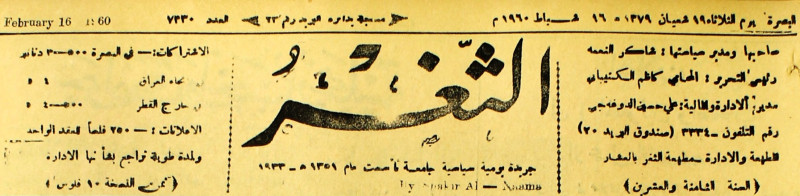 البصرة يوم الثلاثاء ١٩ شعبان ١٣٧٩ ه ١٦ شباط ١٩٦٠ م
مسجلة بدائرة البريد رقم ٢٣
العدد ٧٣٣٠
February 16 1960
صاحبها ومدير سياستها : شاكر النعمه
رئيس التحرير : المحامي كاظم
مدير الادارة والمالية : علي حسين
رقم التلفون - ٣٣٣٤ (صندوق البريد ٢٠)
المطبعة والادارة - مطبعة الثغر بالعشار
(السنة الثامنة والعشرين)
الثَّغْرُ
جريدة يومية سياسية جامعة تأسست عام ١٣٥١ ه - ١٩٣٣
By Shakir Al - Naama
الاشتراكات :- في البصرة ٣٠٠-٥٠٠ دنانير
انحاء العراق ٥
خارج القطر
الاعلانات :- ٢٥٠ فلساً للعقد الواحد
ولمدة طويلة تراجع بشأنها الادارة
(ثمن النسخة ١٠ فلوس)